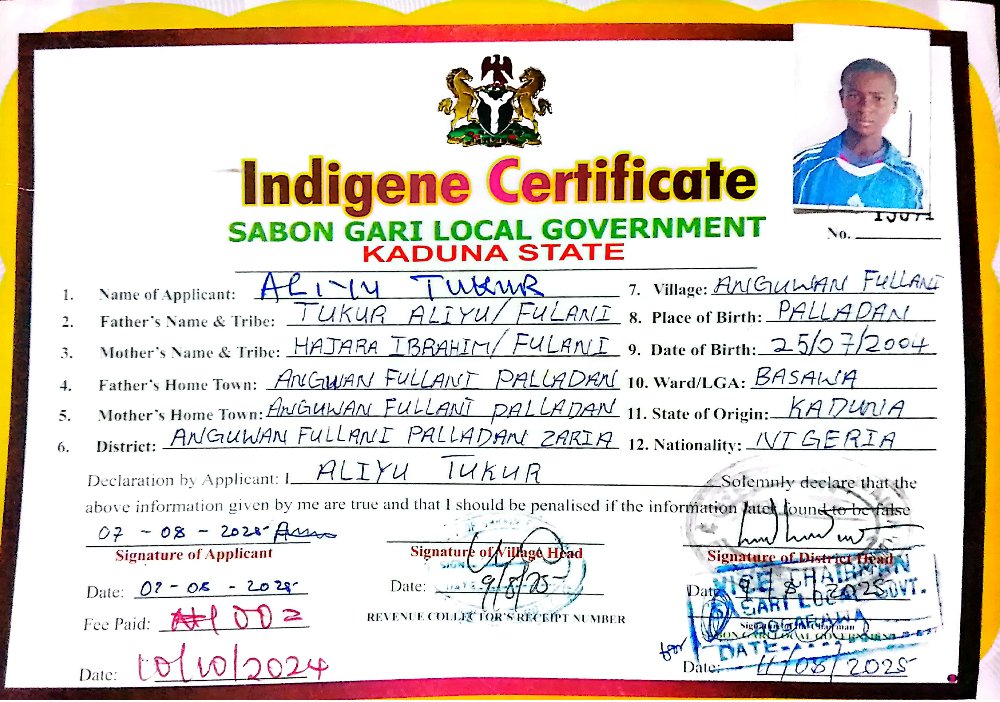 Indigene Certificate
SABON GARI LOCAL GOVERNMENT
KADUNA STATE
No. 13071
1. Name of Applicant: ALIYU TUKUR
2. Father's Name & Tribe: TUKUR ALIYU/FULANI
3. Mother's Name & Tribe: HAJARA IBRAHIM/FULANI
4. Father's Home Town: ANGWAN FULLANI PALLADAN
5. Mother's Home Town: ANGUWAN FULLANI PALLADAN
6. District: ANGUWAN FULLANI PALLADAN ZARIA
7. Village: ANGUWAN FULLANI
8. Place of Birth: PALLADAN
9. Date of Birth: 25/07/2004
10. Ward/LGA: BASAWA
11. State of Origin: KADUNA
12. Nationality: NIGERIA
Declaration by Applicant: I ALIYU TUKUR Solemnly declare that the
above information given by me are true and that I should be penalised if the information later found to be false
07-08-2025
Signature of Applicant
Date: 07-08-2025
Fee Paid: ₦100=
Date: 10/10/2024
Signature of Village Head
Date: 9/8/25
REVENUE COLLECTOR'S RECEIPT NUMBER
Signature of District Head
Date: 9/8/2025
VICE CHAIRMAN
S/GARI LOCAL GOVT.
DATE
for
Date: 11/08/2025